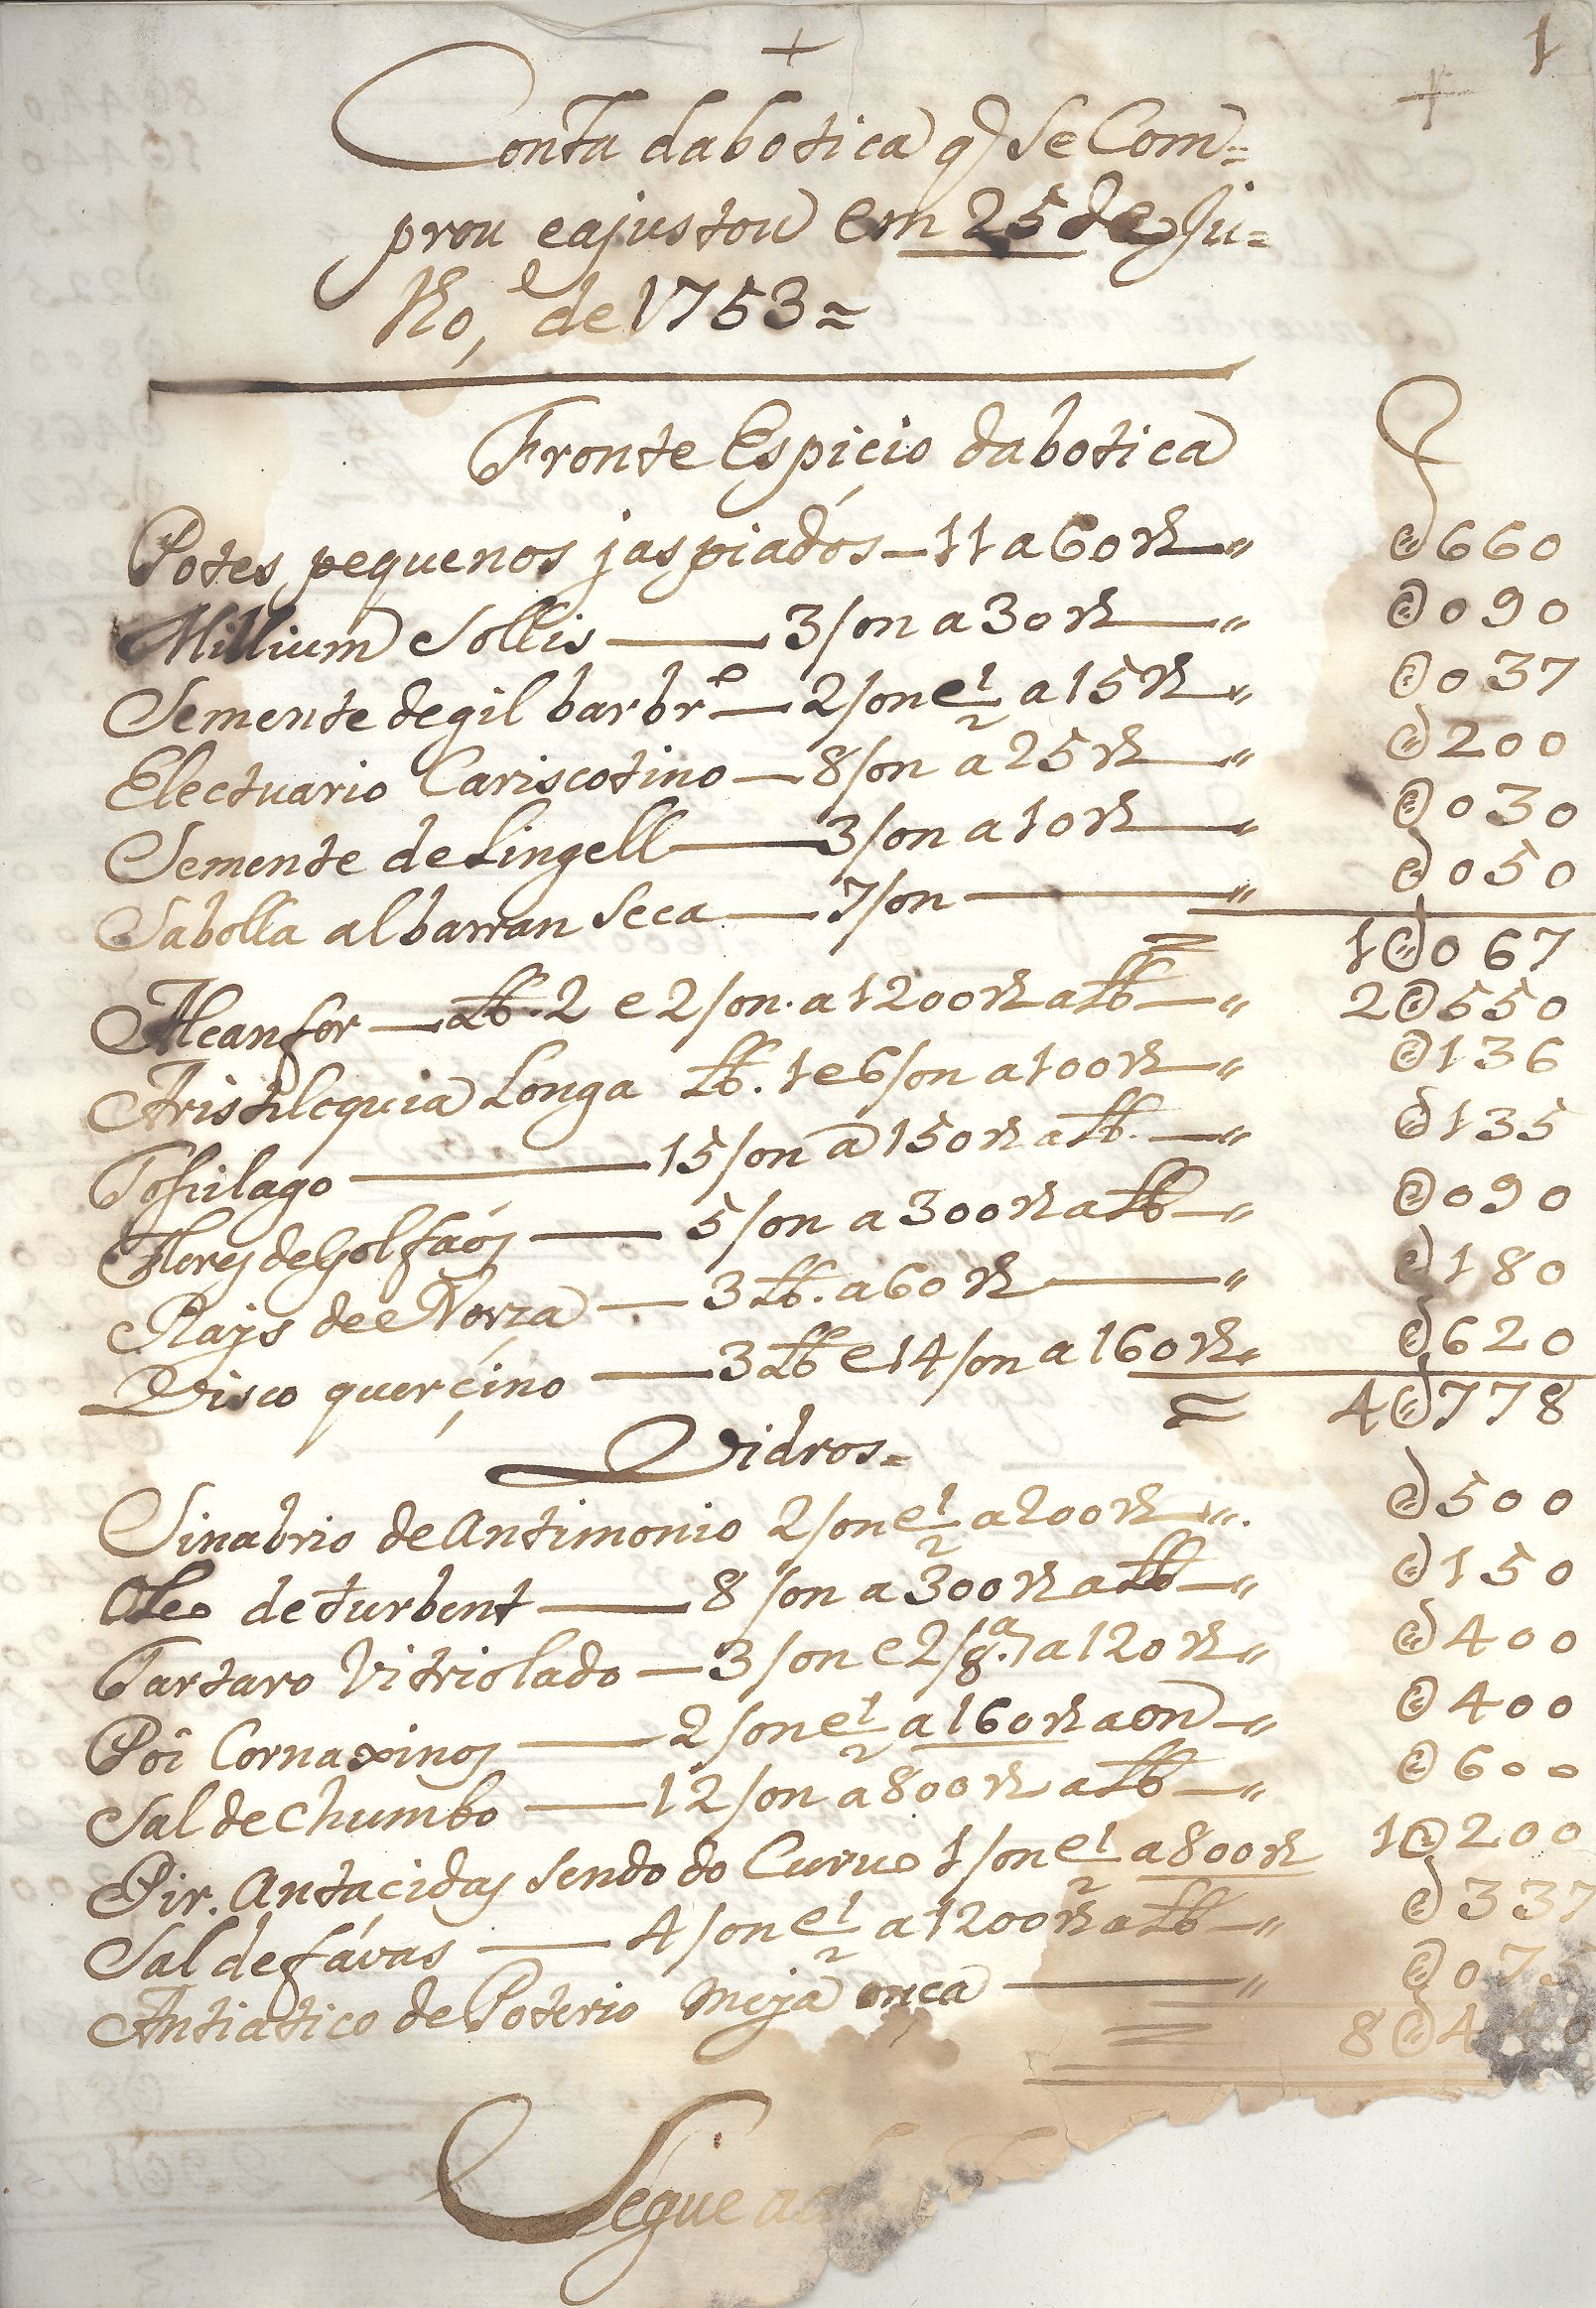 1
Conta dabotica q̃ Se Com=
prou eajustou em 25 de Ju=
lho, de 1753=
Fronte Espicio dabotica
Potes pequenos jaspiados — 11 a 60 rs — " @660
Millium Sollis — 3/on a 30 rs — " @090
Semente de gil barbr.º — 2/on e 1/2 a 15 rs — " @037
Electuario Cariscotino — 8/on a 25 rs — " @200
Semente de Singell — 3/on a 10 rs — " @030
Sabolla albarran Seca — 7/on — " @050
= 1@067
Alcanfor — lb. 2 e 2/on. a 1200 rs a lb — " 2@550
Aristiloquia Longa lb. 1 e 6/on a 100 rs — " @136
Tosilago — 15/on a 150 rs a lb. — " @135
Flores de Golfaós — 5/on a 300 rs a lb — " @090
Rays de eNorza — 3 lb. a 60 rs — " @180
Visco querçino — 3 lb e 14/on a 160 rs " @620
= 4@778
Vidros=
Sinabrio de Antimonio 2/on e 1/2 a 200 rs ". @500
Oleo de turbent — 8/on a 300 rs a lb — " @150
Tartaro Vitriolado — 3/on e 2/8.as a 120 rs " @400
Pôi Cornaxinos — 2/on e 1/2 a 160 rs a on — " @400
Sal de Chumbo — 12/on a 800 rs a lb — " @600
Pir. Antacidas sendo do Curuo 1/on e 1/2 a 800 rs 1@200
Sal de fávas — 4/on e 1/2 a 1200 rs a lb — " @337
Antiatico de Poterio meya onca — " @075
= 8@4
Segue